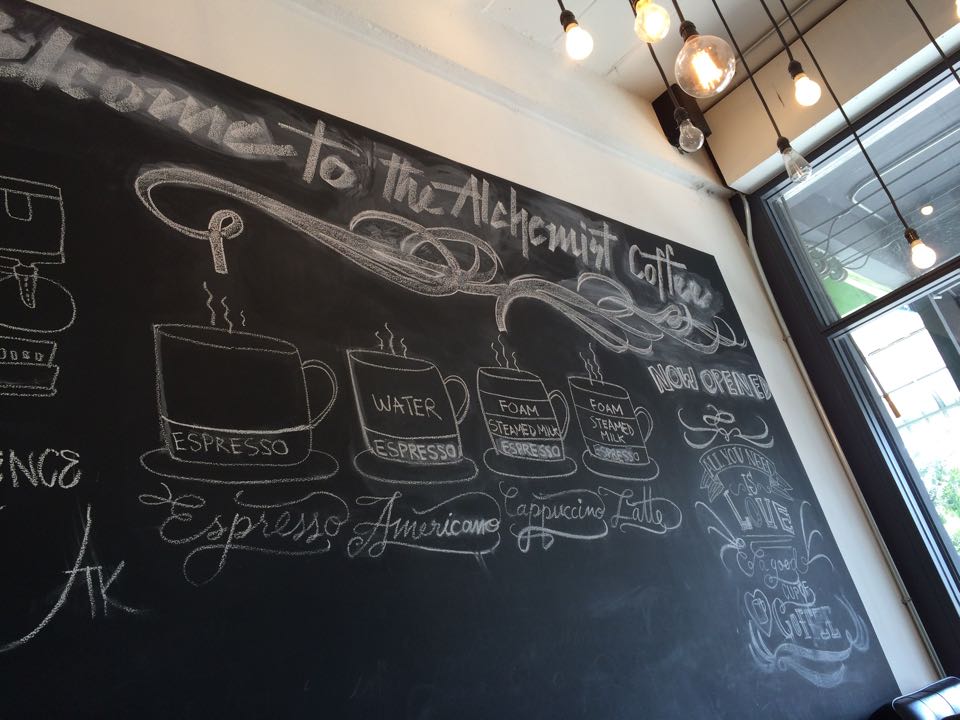 elcome to the Alchemist Coffee
WATER
FOAM
STEAMED MILK
FOAM
STEAMED
MILK
ESPRESSO
ESPRESSO
ESPRESSO
ESPRESSO
Espresso
Americano
Cappuccino
Latte
NOW OPENED
ALL YOU NEED
is
LOVE
& a good
CUP OF
COFFEE
ENCE